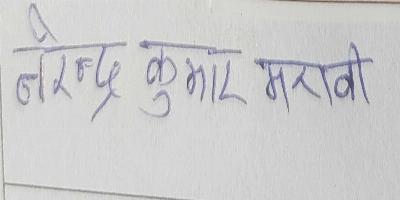 नरेन्द्र कुमार मरावी